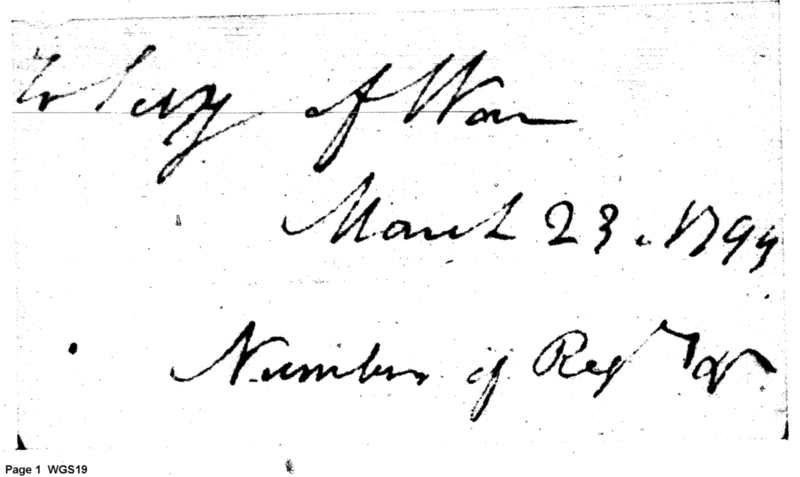 To Secy of War
March 23. 1799
Number of Regts &
Page 1 WGS19